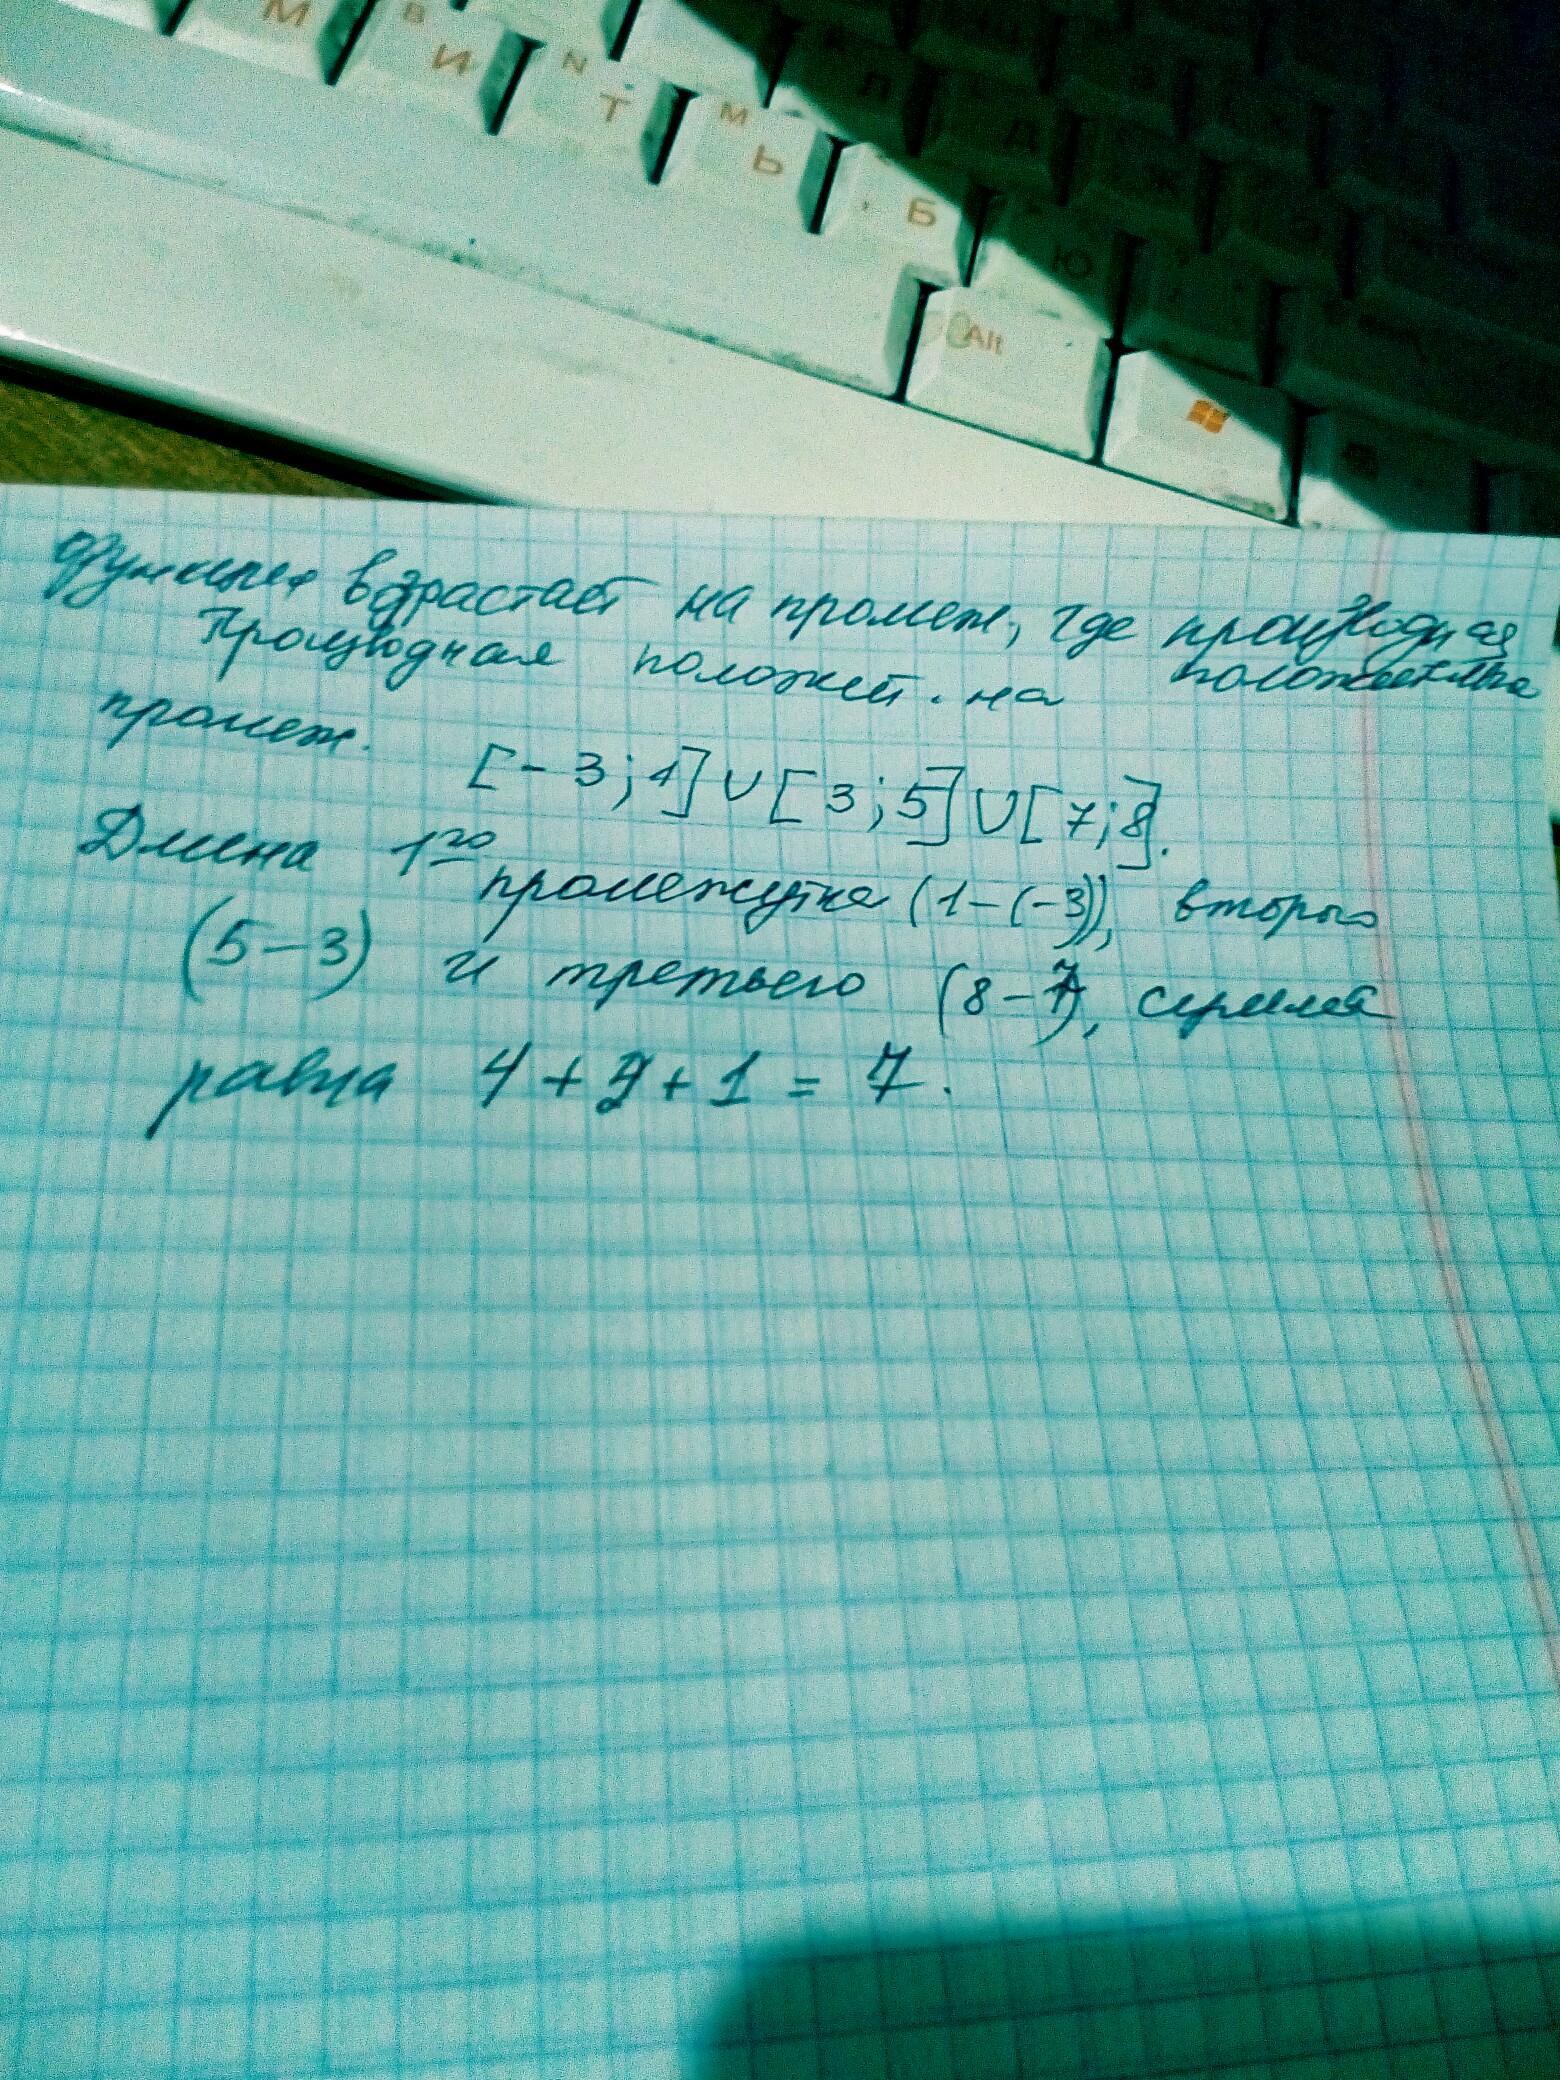 М
В
И
N
Т
М
Ь
Б
Ю
Л
Д
Ж
Э
Alt
функция возрастает на промеж, где производная
положительна
Производная положит. на
промеж.
[-3;1]∪[3;5]∪[7;8].
Длина 1го
промежутка (1-(-3)), второго
(5-3) и третьего (8-7), суммая
равна 4+2+1=7.